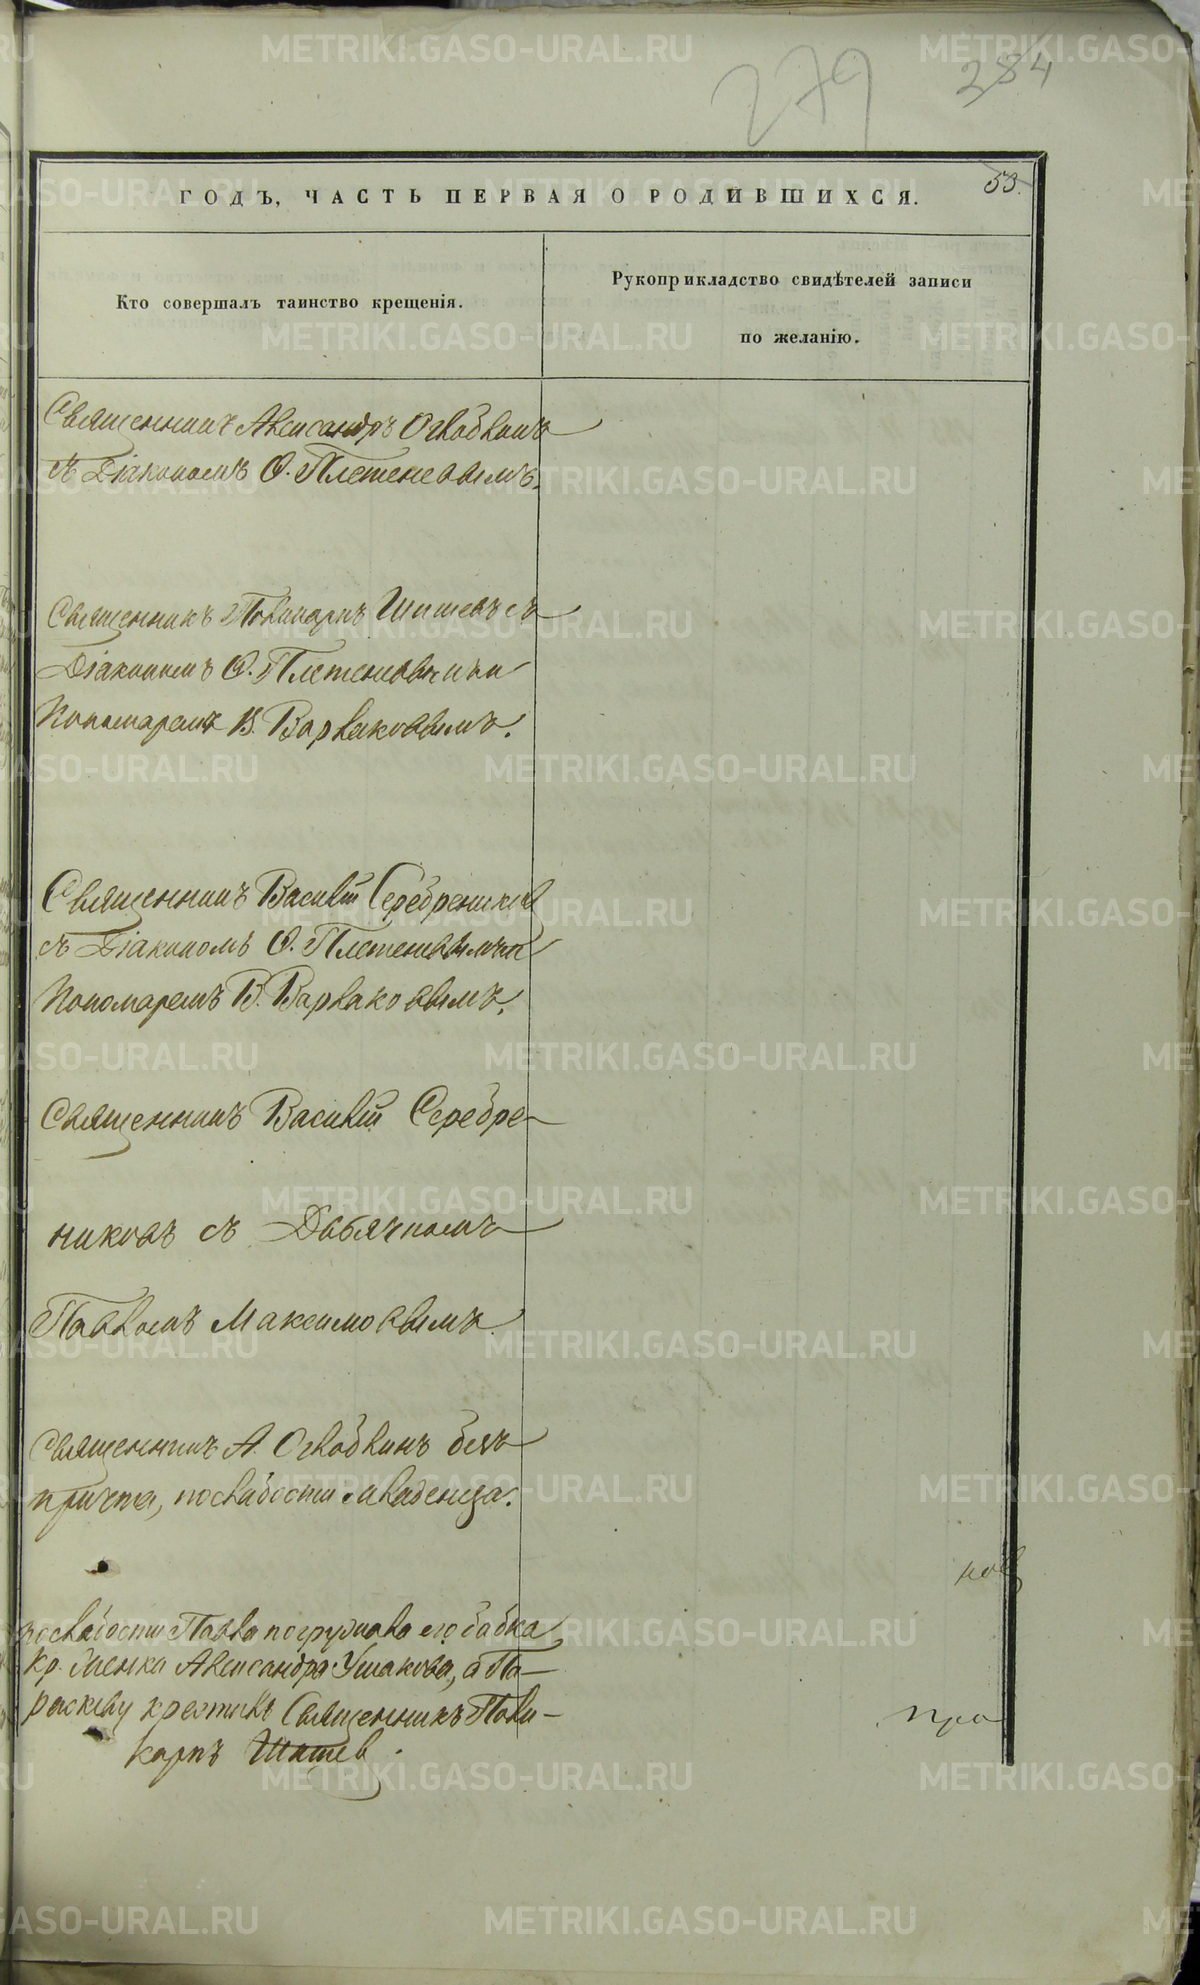 279
284
53.
ГОДЪ, ЧАСТЬ ПЕРВАЯ О РОДИВШИХСЯ.
Кто совершалъ таинство крещенія.
Рукоприкладство свидѣтелей записи
по желанію.
Священникъ Александръ
съ Діакономъ Ѳ. Плетеневымъ.
Священникъ Поликарпъ Шишевъ съ
Діакономъ Ѳ. Плетеневымъ и
Пономаремъ В. Варлаковымъ.
Священникъ Василій Серебрениковъ
съ Діакономъ Ѳ. Плетеневымъ и
Пономаремъ В. Варлаковымъ.
Священникъ Василій Серебре-
никовъ съ Дьячкомъ
Павломъ Максимовымъ.
Священникъ А. безъ
причта, по слабости младенца.
по слабости Павла погружала его бабка
кр. женка Александра Ушакова, а Па-
раскеву крестилъ Священникъ Поли-
карпъ Шишев.
METRIKI.GASO-URAL.RU